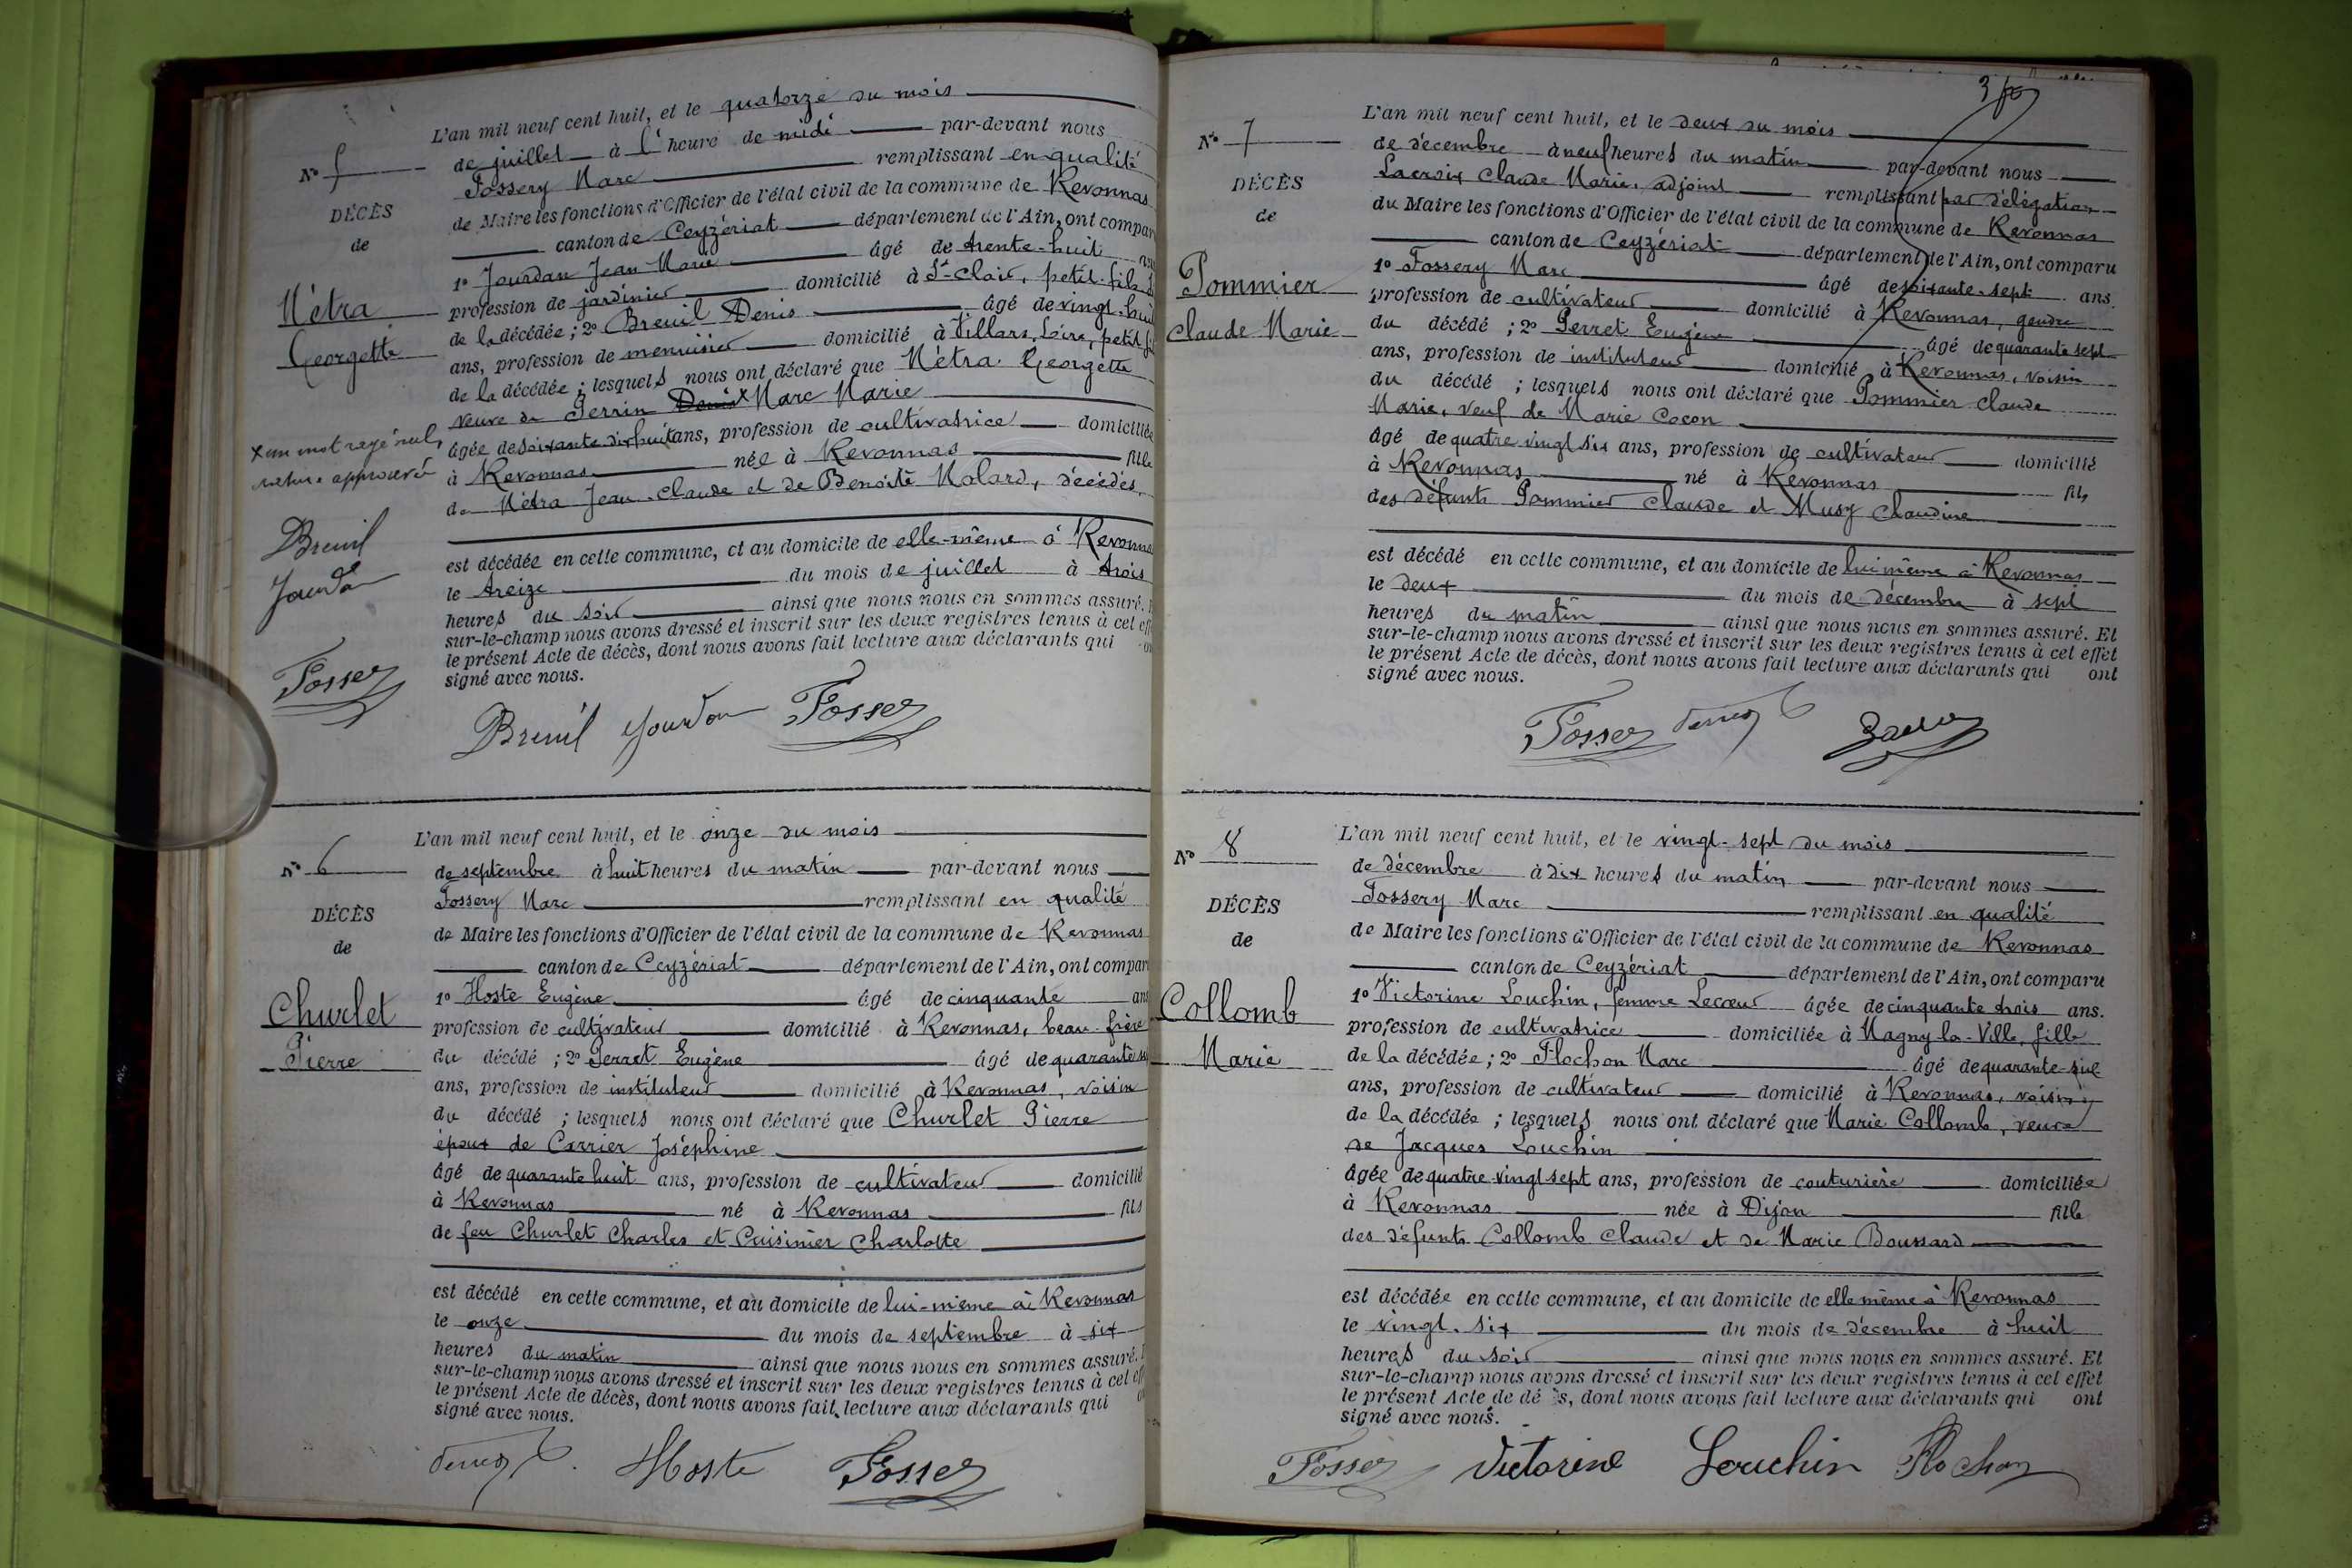 L'an mil neuf cent huit, et le quatorze du mois
N° 5
de juillet à l'heure de midi par-devant nous
Fossery Marc remplissant en qualité
DÉCÈS
de Maire les fonctions d'Officier de l'état civil de la commune de Revonnas
de
canton de Ceyzériat département de l'Ain, ont compar
1° Jourdan Jean Marie âgé de trente-huit
Métra
profession de jardinier domicilié à St-Clair, petit-fils
Georgette
de la décédée ; 2° Breuil Denis âgé de vingt-huit
ans, profession de menuisier domicilié à Villars, Loire, petit
de la décédée ; lesquels nous ont déclaré que Métra Georgette
veuve de Perrin Denis x Marc Marie
x un mot rayé nul,
âgée de soixante dix huit ans, profession de cultivatrice domiciliée
approuvé
à Revonnas née à Revonnas fille
de Métra Jean-Claude et de Benoîte Molard, décédés,
Breuil
Jourdan
est décédée en cette commune, et au domicile de elle-même à Revonna
le treize du mois de juillet à trois
heures du soir ainsi que nous nous en sommes assuré.
sur-le-champ nous avons dressé et inscrit sur les deux registres tenus à cet eff
le présent Acte de décès, dont nous avons fait lecture aux déclarants qui
Fossery
signé avec nous.
Breuil Jourdan Fossery
L'an mil neuf cent huit, et le onze du mois
N° 6
de septembre à huit heures du matin par-devant nous
Fossery Marc remplissant en qualité
DÉCÈS
de Maire les fonctions d'Officier de l'état civil de la commune de Revonnas
de
canton de Ceyzériat département de l'Ain, ont compar
1° Hoste Eugène âgé de cinquante ans
Churlet
profession de cultivateur domicilié à Revonnas, beau-frère
Pierre
du décédé ; 2° Perret Eugène âgé de quarante
ans, profession de instituteur domicilié à Revonnas, voisin
du décédé ; lesquels nous ont déclaré que Churlet Pierre
époux de Carrier Joséphine
âgé de quarante huit ans, profession de cultivateur domicilié
à Revonnas né à Revonnas fils
de feu Churlet Charles et Cuisinier Charlotte
est décédé en cette commune, et au domicile de lui-même à Revonnas
le onze du mois de septembre à six
heures du matin ainsi que nous nous en sommes assuré.
sur-le-champ nous avons dressé et inscrit sur les deux registres tenus à cet ef
le présent Acte de décès, dont nous avons fait lecture aux déclarants qui
signé avec nous.
Perret Hoste Fossery
L'an mil neuf cent huit, et le deux du mois
N° 7
de décembre à neuf heures du matin par-devant nous
Lacroix Claude Marie, adjoint remplissant par délégation
DÉCÈS
du Maire les fonctions d'Officier de l'état civil de la commune de Revonnas
de
canton de Ceyzériat département de l'Ain, ont comparu
1° Fossery Marc âgé de soixante-sept ans.
Pommier
profession de cultivateur domicilié à Revonnas, gendre
Claude Marie
du décédé ; 2° Perret Eugène âgé de quarante sept
ans, profession de instituteur domicilié à Revonnas, voisin
du décédé ; lesquels nous ont déclaré que Pommier Claude
Marie, veuf de Marie Cocon
âgé de quatre vingt six ans, profession de cultivateur domicilié
à Revonnas né à Revonnas fils
des défunts Pommier Claude et Musy Claudine
est décédé en cette commune, et au domicile de lui même à Revonnas
le deux du mois de décembre à sept
heures du matin ainsi que nous nous en sommes assuré. Et
sur-le-champ nous avons dressé et inscrit sur les deux registres tenus à cet effet
le présent Acte de décès, dont nous avons fait lecture aux déclarants qui ont
signé avec nous.
Fossery Perret
L'an mil neuf cent huit, et le vingt-sept du mois
N° 8
de décembre à dix heures du matin par-devant nous
Fossery Marc remplissant en qualité
DÉCÈS
de Maire les fonctions d'Officier de l'état civil de la commune de Revonnas
de
canton de Ceyzériat département de l'Ain, ont comparu
1° Victorine Louchin, femme Lecœur âgée de cinquante trois ans.
Collomb
profession de cultivatrice domiciliée à Magny la-Ville, fille
Marie
de la décédée ; 2° Flochon Marc âgé de quarante-six
ans, profession de cultivateur domicilié à Revonnas, voisin
de la décédée ; lesquels nous ont déclaré que Marie Collomb, veuve
de Jacques Louchin
âgée de quatre-vingt sept ans, profession de couturière domiciliée
à Revonnas née à Dijon fille
des défunts Collomb Claude et de Marie Boussard
est décédée en cette commune, et au domicile de elle même à Revonnas
le vingt-six du mois de décembre à huit
heures du soir ainsi que nous nous en sommes assuré. Et
sur-le-champ nous avons dressé et inscrit sur les deux registres tenus à cet effet
le présent Acte de dé s, dont nous avons fait lecture aux déclarants qui ont
signé avec nous.
Fossery Victorine Louchin Flochon